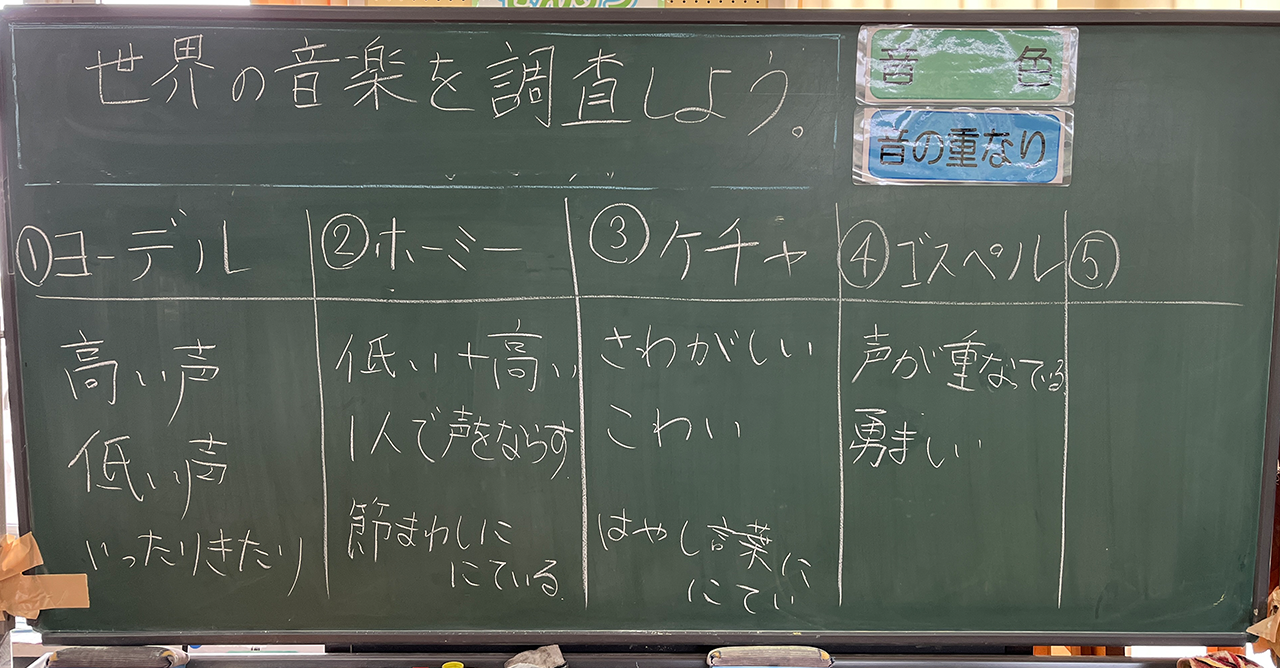 世界の音楽を調査しよう。
音色
音の重なり
①ヨーデル
高い声
低い声
いったりきたり
②ホーミー
低い+高い
1人で声をならす
節まわしに
にている
③ケチャ
さわがしい
こわい
はやし言葉に
にてい
④ゴスペル
声が重なってる
勇ましい
⑤